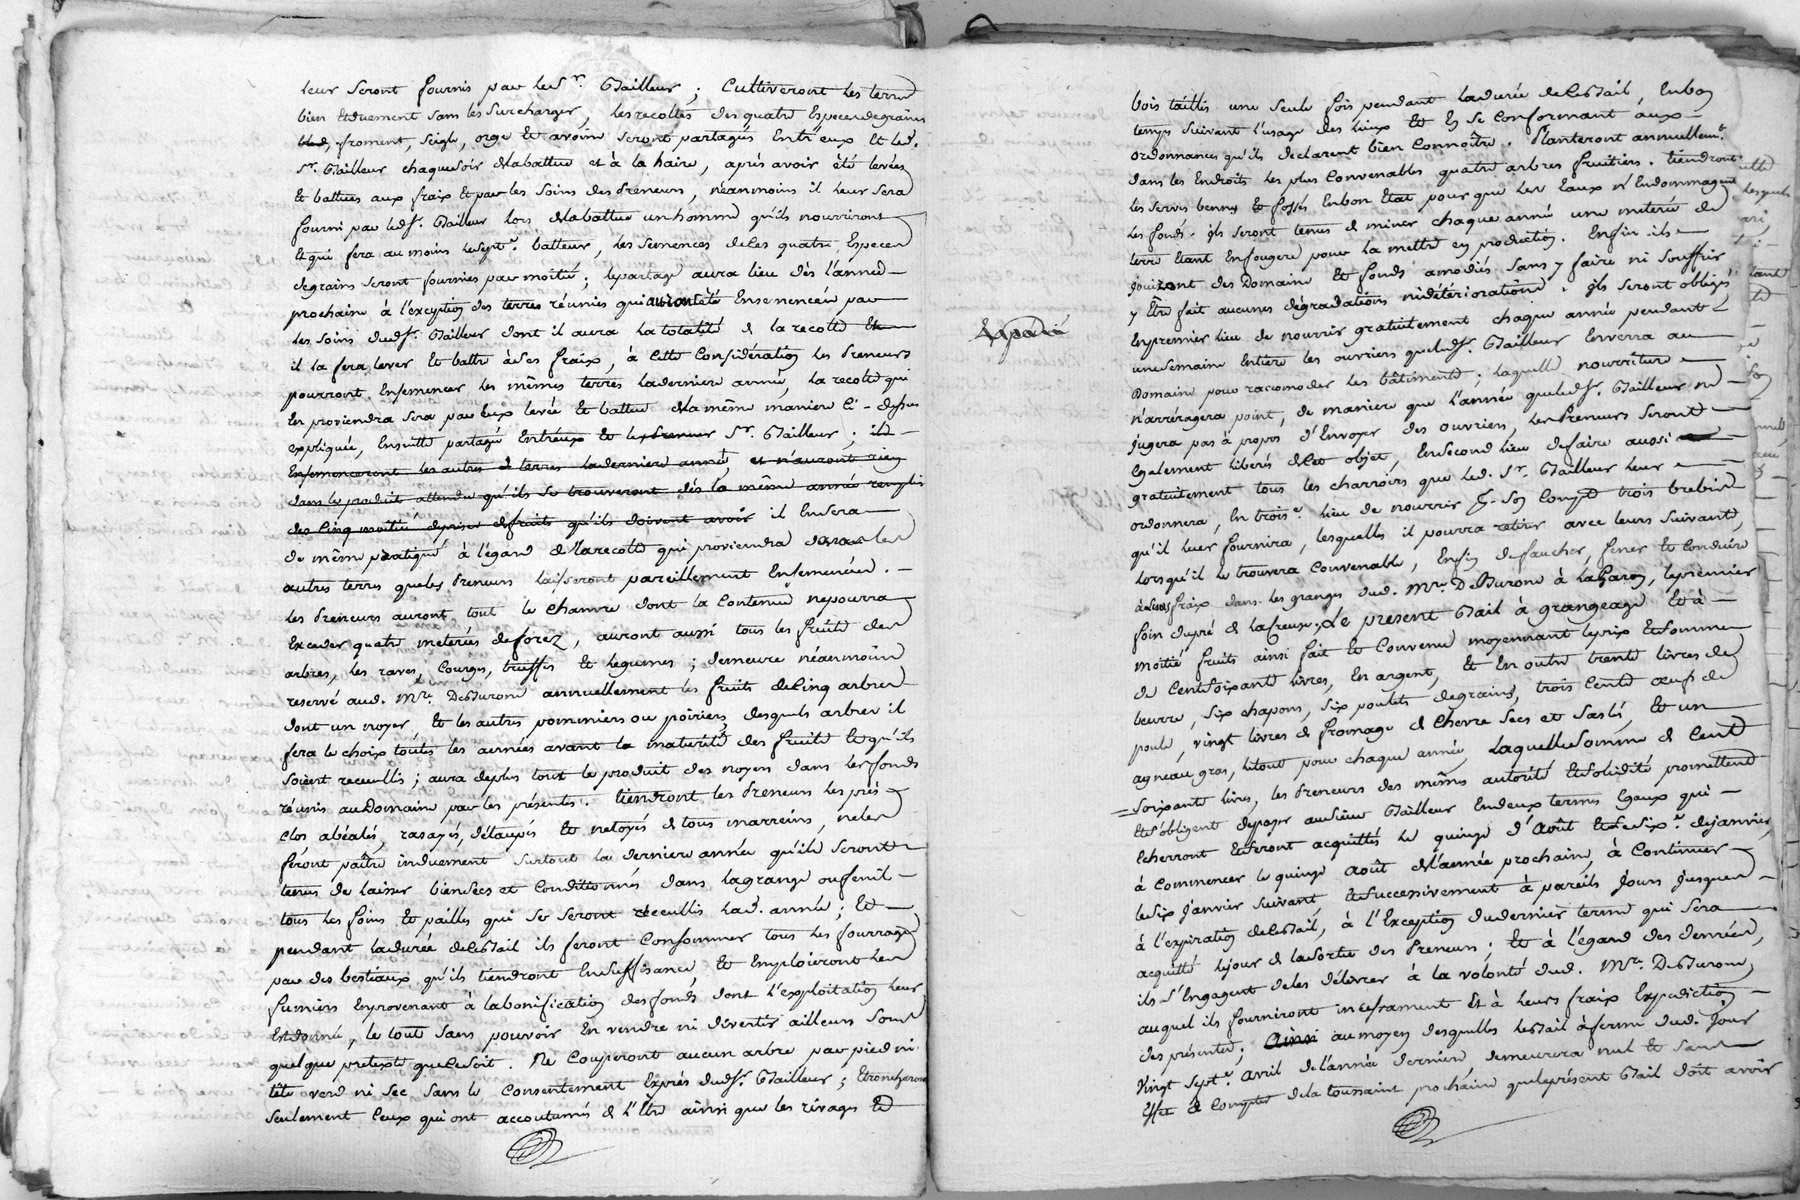 leur seront fournis par led Sr. Bailleur ; Cultiveront les terres
bien et duement sans les surcharger, les recoltes des quatre Especes de grains
bled, froment, seigle, orge et avoine seront partagés Entr'eux et led.
Sr. Bailleur chaque soir de la battue et à la haire, après avoir été levées
et battues aux fraix et par les soins des Preneurs, néanmoins il leur sera
fourni par led. Sr. Bailleur lors de la battue un homme qu'ils nourriront
et qui sera au moins le sept.e batteur, les semences de ces quatre Especes
de grains seront fournies par moitié ; le partage aura lieu dès l'année
prochaine à l'exception des terres réunies qui auront été Ensemencées par
les soins dud. Sr. Bailleur dont il aura la totalité de la recolte et
il la fera lever et battre à ses fraix, à cette Considération les Preneurs
pourront Ensemencer les mêmes terres la derniere année, la recolte qui
En proviendra sera par Eux levée et battue de la même maniere Ci-dessus
expliquée, Ensuitte partagée Entr'eux et le Preneur Sr. Bailleur ; ils
Ensemenceront les autres de terres la derniere année, et n'auront rien
dans le produit attendu qu'ils se trouveront dès la même année remplis
des Cinq moitiés de prises de fruits qu'ils doivent avoir il En sera
de même pratiqué à l'égard de la recolte qui proviendra dans les
autres terres que les Preneurs laisseront pareillement Ensemencées.
Les Preneurs auront tout le Chanvre dont la Contenue ne pourra
Exceder quatre meterées de forez, auront aussi tous les fruits des
arbres, les raves, Courges, truffes et legumes ; demeure néanmoins
reservé aud. Mre. DeBurone annuellement les fruits de Cinq arbres
dont un noyer et les autres pommiers ou poiriers, desquels arbres il
fera le choix toutes les années avant la maturité des fruits et qu'ils
soient recueillis ; aura de plus tout le produit des noyers dans les fonds
réunis au Domaine par les présentes. tiendront les Preneurs les prés
Clos abéalés, rasayés, détaupés et netoyés de tous marreins, ne les
feront paître induement surtout la derniere année qu'ils seront
tenus de laisser bien secs et Conditionnés dans la grange ou fenil
tous les foins et pailles qui se seront receullis lad. année ; Et
pendant la durée de ce Bail ils feront Consommer tous les fourrages
par des bestiaux qu'ils tiendront En suffisance, et Emploieront les
fumiers En provenant à la bonification des fonds dont l'exploitation leur
Est donnée, le tout sans pouvoir En vendre ni divertir ailleurs sous
quelque pretexte que ce soit. Ne Couperont aucun arbre par pied ni
tête verd ni sec sans le Consentement Exprès dud. Sr. Bailleur ; Etroncheront
seulement Ceux qui ont accoutumés de l'Etre ainsi que les rivages et
bois taillis une seule fois pendant la durée de ce Bail, En bon
temps suivant l'usage des lieux et En se Conformant aux
ordonnances qu'ils declarent bien Connoître. Planteront annuellemt.
dans les Endroits les plus Convenables quatre arbres fruitiers. tiendront
les serves bennes et fossés En bon Etat pour que les Eaux n'Endommagent
les fonds. ils seront tenus de miner chaque année une meterée de
terre Etant En fougere pour la mettre en production. Enfin ils
jouiront des Domaine et fonds amodiés sans y faire ni souffrir
y Etre fait aucunes dégradations ni détériorations. ils seront obligés
En premier lieu de nourrir gratuitement chaque année pendant
une semaine Entiere les ouvriers que led. Sr. Bailleur Enverra au
Domaine pour racomoder les bâtiments ; laquelle nourriture
n'arréragera point, de maniere que l'année que led. Sr. Bailleur ne
jugera pas à propos d'Envoyer des ouvriers, les Preneurs seront
Egalement liberés de Cet objet, En second lieu de faire aussi
gratuitement tous les charrois que led. Sr. Bailleur leur
ordonnera, En trois.e lieu de nourrir p. son Compte trois brebis
qu'il leur fournira, lesquelles il pourra retirer avec leurs suivants,
lorsqu'il le trouvera Convenable, Enfin de faucher, fener et Conduire
à leurs fraix dans les granges dud. Mre. DeBurone à la Garon, le premier
foin du pré de la Creuse. Le present Bail à grangeage et à
moitié fruits ainsi fait et Convenu moyennant le prix et somme
de Cent soixante livres, En argent, et En outre trente livres de
beurre, six chapons, six poulets de grains, trois Cents oeufs de
poule, vingt livres de fromage de Chevre secs et salés, et un
agneau gras, le tout pour chaque année, laquelle somme de Cent
soixante livres, les Preneurs des mêmes autorité et solidité promettent
et s'obligent de payer au sieur Bailleur En deux termes Egaux qui
Echerront et seront acquittés le quinze d'août et le six.e de janvier,
à commencer le quinze août de l'année prochaine, à Continuer
le six janvier suivant, et successivement à pareils jours jusques
à l'expiration de ce Bail, à l'Exception du dernier terme qui sera
acquitté le jour de la sortie des Preneurs ; et à l'égard des denrées,
ils s'Engagent de les délivrer à la volonté dud. Mre. DeBurone
auquel ils fourniront incessament et à leurs fraix Expedition
des présentes ; Ainsi au moyen desquelles le Bail à ferme dud. jour
vingt sept.e avril de l'année derniere, demeurera nul et sans
Effet à Compter de la toussaint prochaine que le présent Bail doit avoir